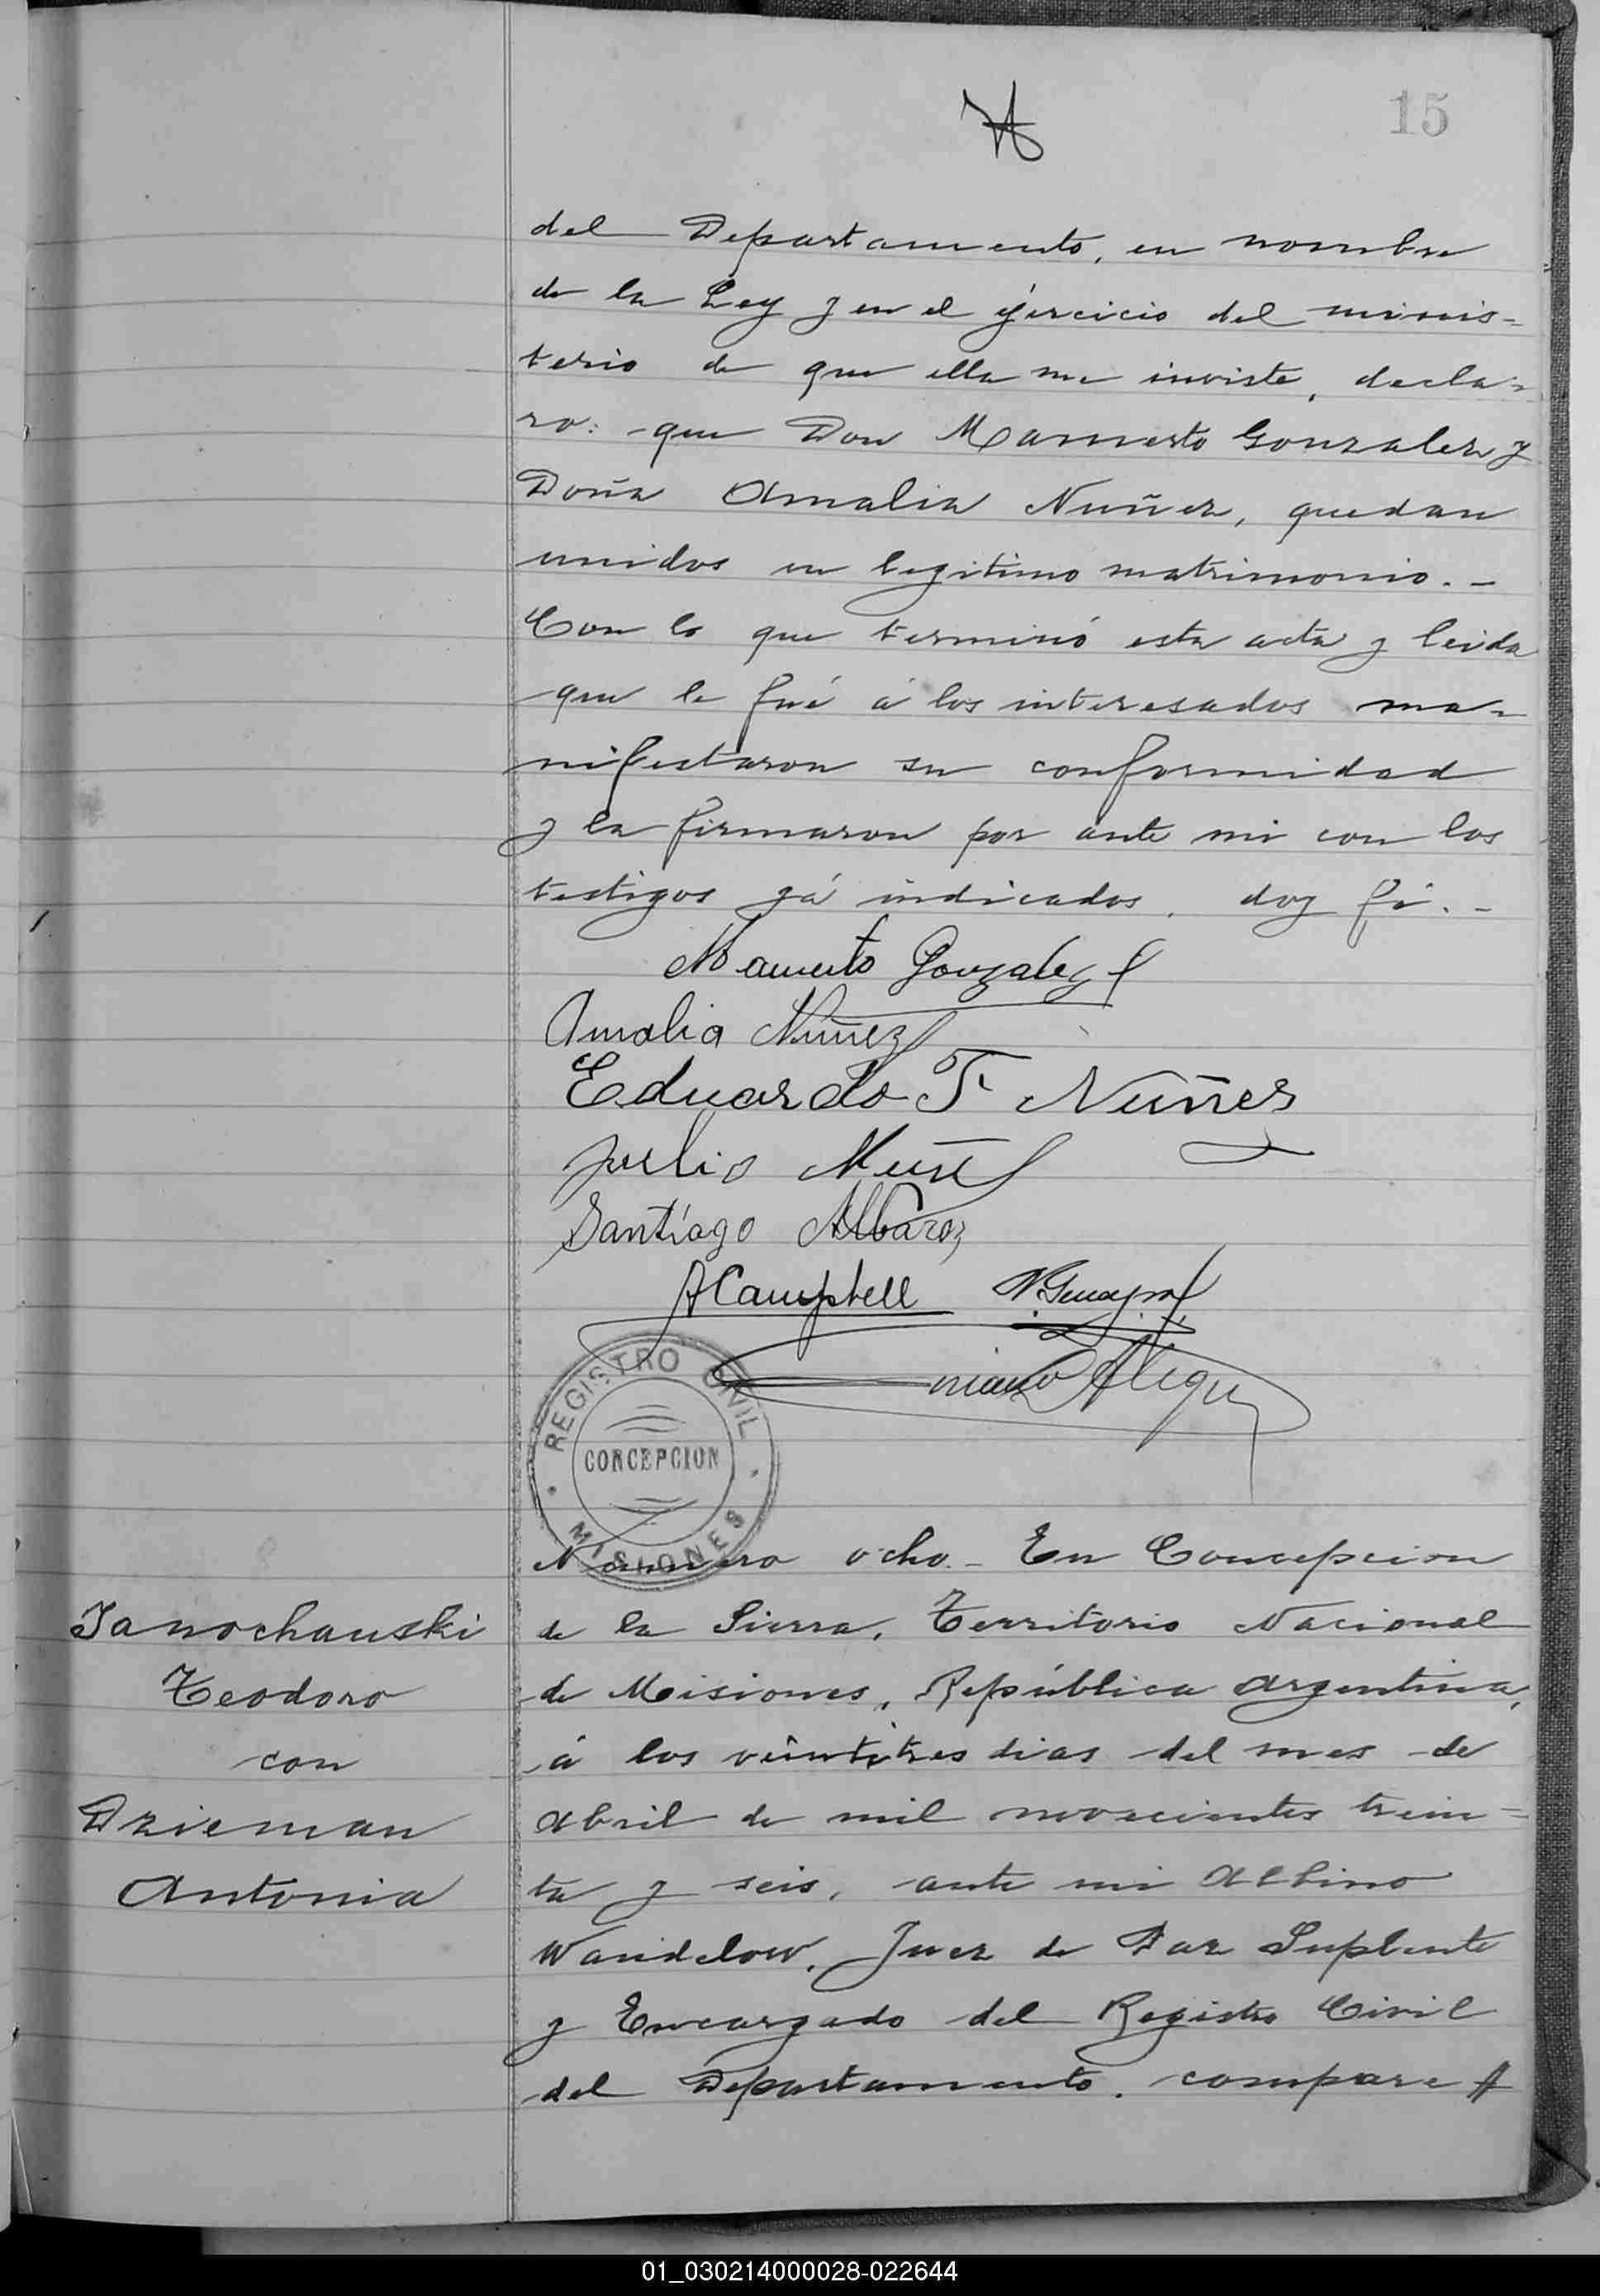 15
del Departamento, en nombre
de la Ley y en el ejercicio del minis=
terio de que ella me inviste, decla=
ro: que Don Mamerto Gonzalez y
Doña Amalia Nuñez, quedan
unidos en legitimo matrimonio.-
Con lo que terminó esta acta y leida
que le fué á los interesados ma=
nifestaron su conformidad
y la firmaron por ante mi con los
testigos yá indicados, doy fé.-
Mamerto Gonzalez
Amalia Nuñez
Eduardo T Nuñez
Julio Nuñe
Santiago Albarez
A Campbell
REGISTRO CIVIL
CONCEPCION
MISIONES
Numero ocho.- En Concepcion
de la Sierra, Territorio Nacional
de Misiones, República Argentina,
á los veintitres dias del mes de
Abril de mil novecientos trein=
ta y seis, ante mi Albino
Wandelow, Juez de Paz Suplente
y Encargado del Registro Civil
del Departamento, compare
Janochauski
Teodoro
con
Dzieman
Antonia
01_030214000028-022644